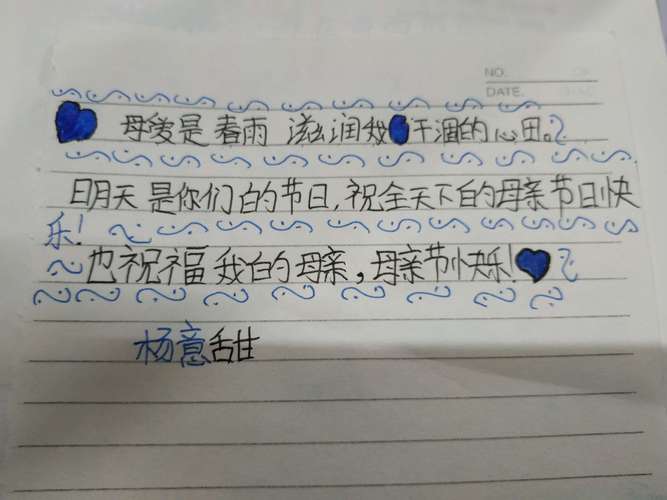 NO.
DATE.
母爱是春雨 滋润我干涸的心田。
明天是你们的节日，祝全天下的母亲节日快
乐！
也祝福我的母亲，母亲节快乐！
杨意甜